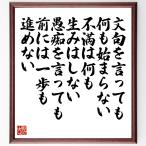 文句を言っても
何も始まらない
不満は何も
生みはしない
愚痴を言っても
前には一歩も
進めない